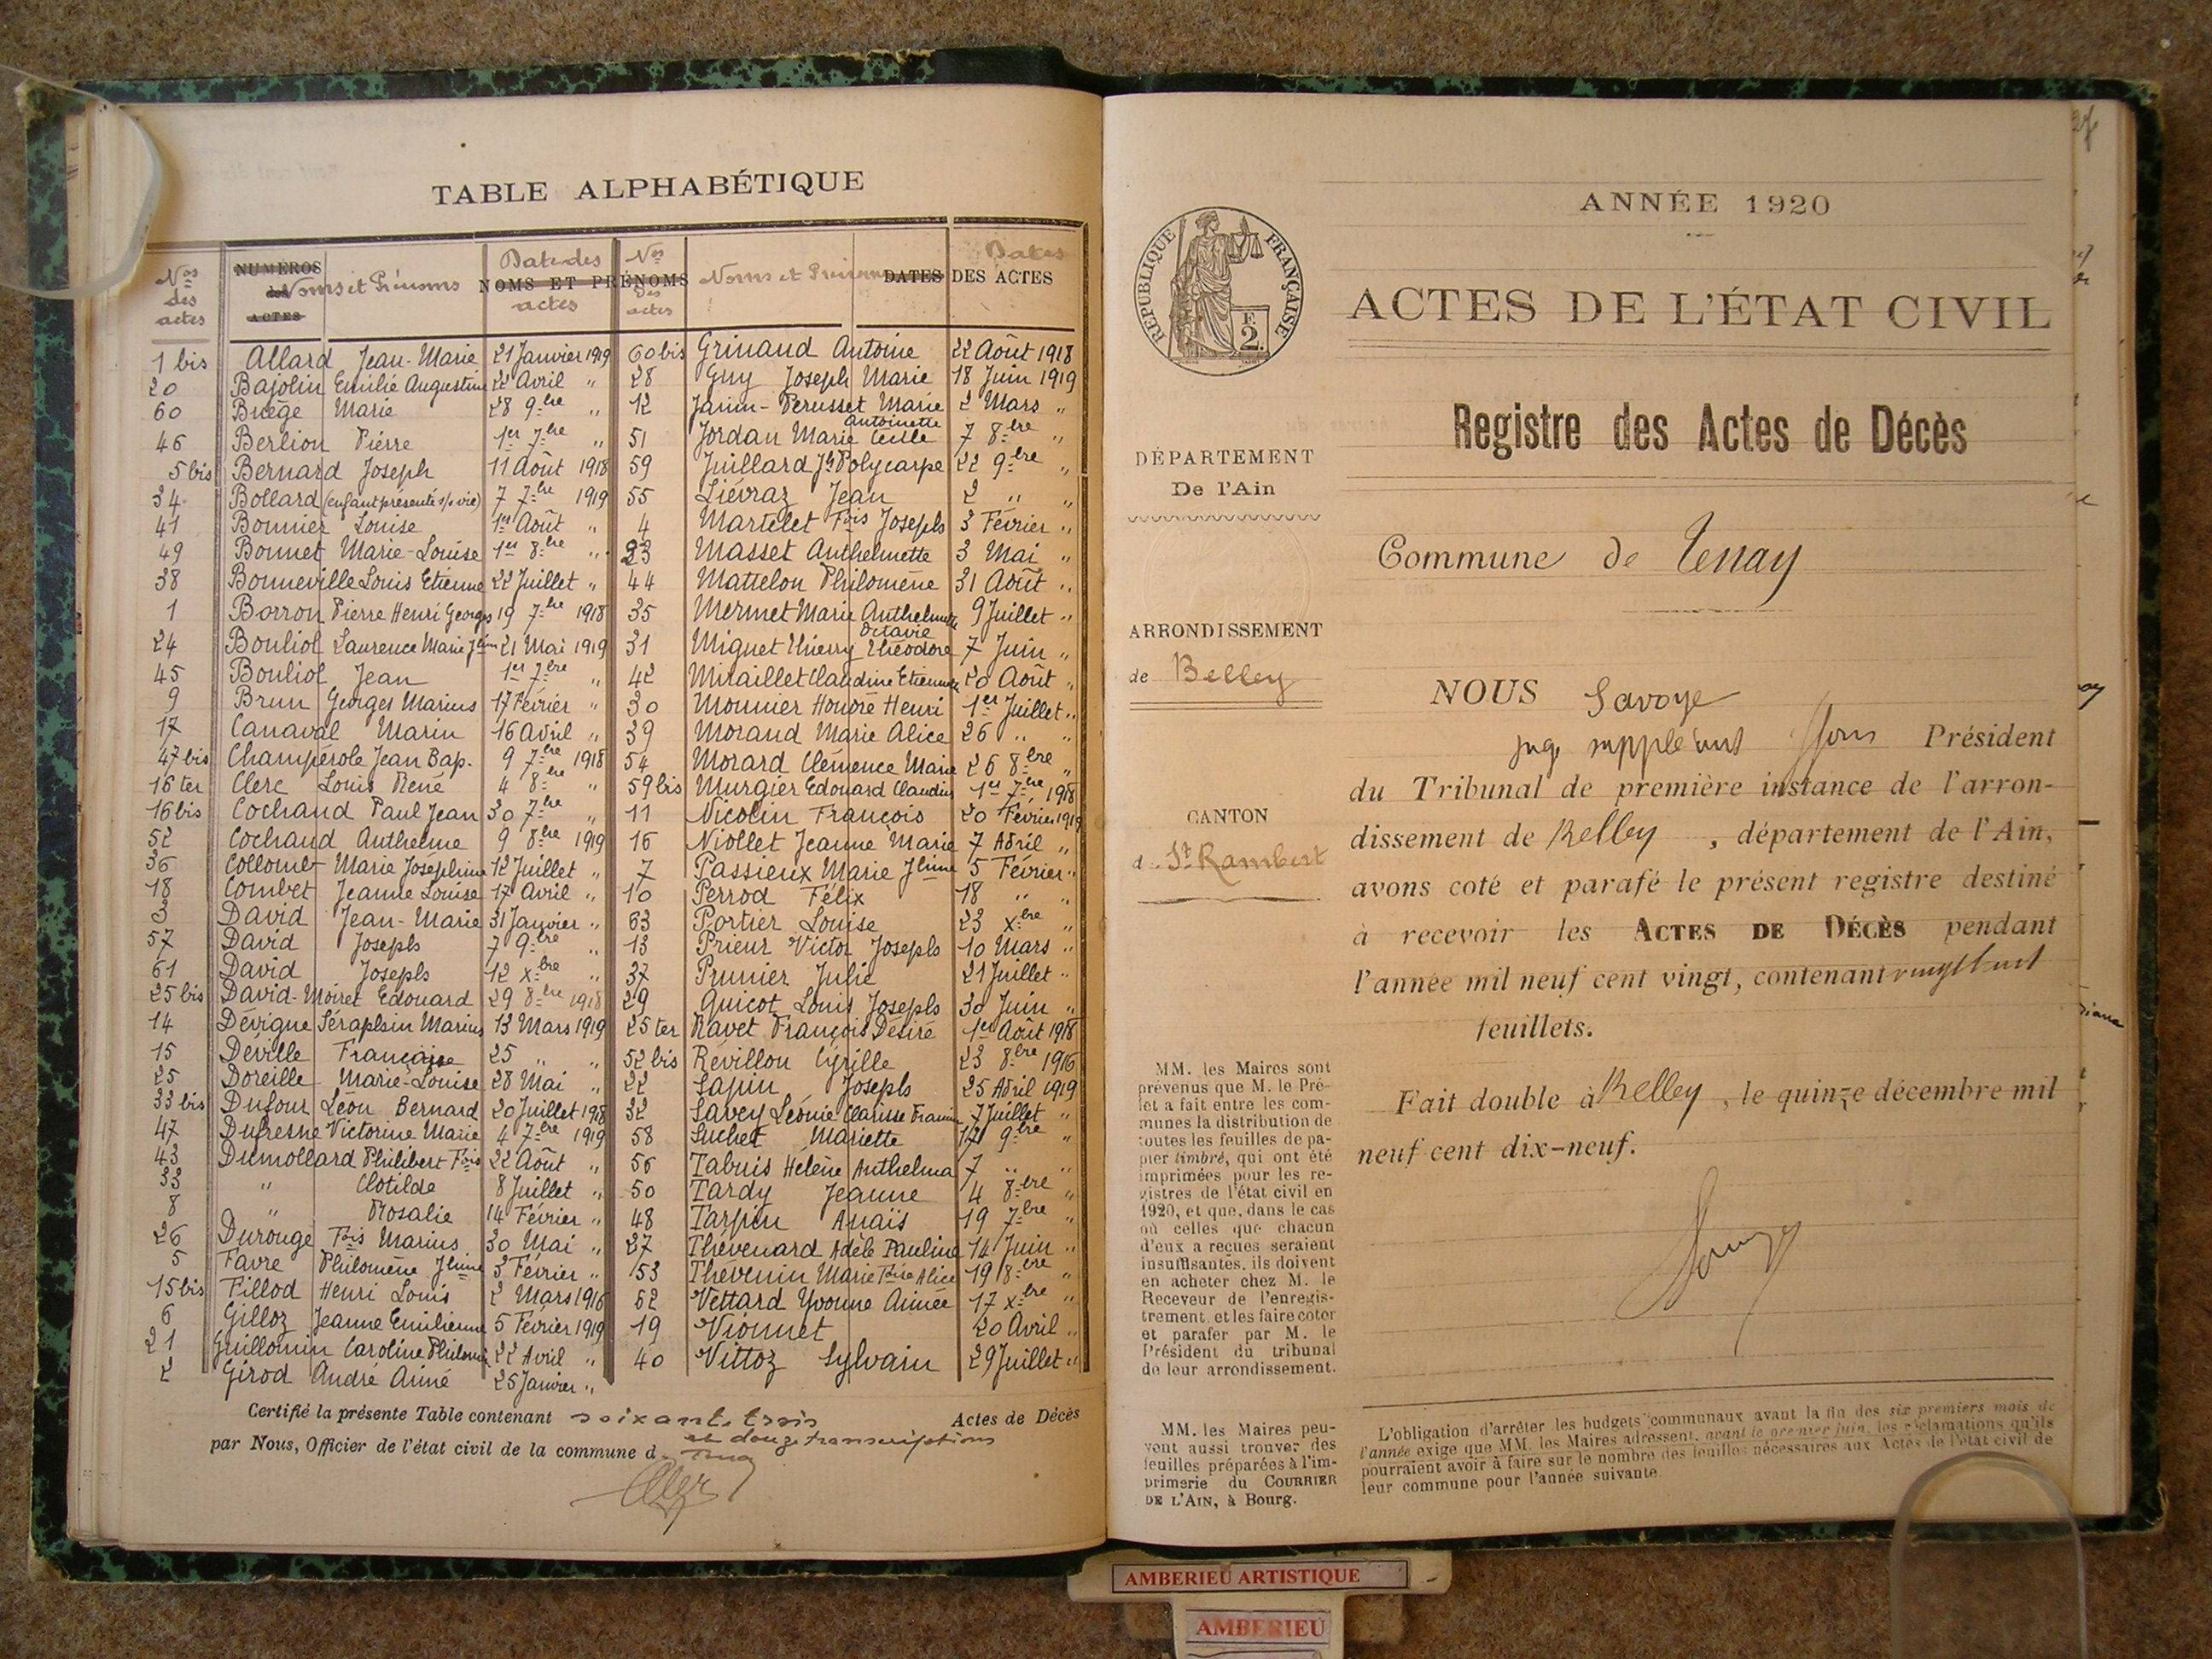 TABLE ALPHABÉTIQUE
Nos des actes
NUMÉROS des ACTES
Noms et Prénoms
Date des actes
NOMS ET PRÉNOMS
Nos des actes
Noms et Prénoms
Dates
DATES DES ACTES
1 bis Allard Jean-Marie 21 Janvier 1919
20 Bajolin Emilie Augustine 22 Avril "
60 Buège Marie 28 9bre "
46 Berlion Pierre 1er 7bre "
5 bis Bernard Joseph 11 Août 1918
34 Bollard (enfant présenté s/s vie) 7 7bre 1919
41 Bonnier Louise 1er Août "
49 Bonnet Marie-Louise 1er 8bre "
38 Bonneville Louis Etienne 22 Juillet "
1 Borron Pierre Henri Georges 19 7bre 1918
24 Bouliol Laurence Marie Jline 21 Mai 1919
45 Bouliol Jean 1er 7bre "
9 Brun Georges Marius 17 Février "
17 Canaval Marin 16 Avril "
47 bis Champérole Jean Bap. 9 7bre 1918
16 ter Clerc Louis René 4 8bre "
16 bis Cochand Paul Jean 30 7bre "
52 Cochand Anthelme 9 8bre 1919
36 Collomb Marie Josephine 12 Juillet "
18 Combet Jeanne Louise 17 Avril "
3 David Jean-Marie 31 Janvier "
57 David Joseph 7 9bre "
61 David Joseph 12 xbre "
25 bis David-Moiret Edouard 29 8bre 1918
14 Dévigne Séraphin Marius 13 Mars 1919
15 Déville Françoise 25 " "
25 Doreille Marie-Louise 28 Mai "
33 bis Dufour Léon Bernard 20 Juillet 1918
47 Dufresne Victorine Marie 4 7bre 1919
43 Dumollard Philibert Fois 22 Août "
33 " Clotilde 8 Juillet "
8 " Rosalie 14 Février "
26 Durouge Fois Marius 30 Mai "
5 Favre Philomène Jline 3 Février "
15 bis Fillod Henri Louis 2 Mars 1916
6 Gilloz Jeanne Emilienne 5 Février 1919
21 Guillomin Caroline Philom 22 Avril "
2 Girod André Aimé 25 Janvier "
60 bis Grinand Antoine 22 Août 1918
28 Guy Joseph Marie 18 Juin 1919
12 Janin-Perusset Marie 2 Mars "
Antoinette
51 Jordan Marie Cécile 7 8bre "
59 Juillard Jh Polycarpe 22 9bre "
55 Liévraz Jean 2 " "
4 Martelet Fois Joseph 3 Février "
23 Masset Anthelmette 3 Mai "
44 Mattelon Philomène 31 Août "
35 Mermet Marie Anthelmette 9 Juillet "
Octavie
31 Miguet Thierry Théodore 7 Juin "
42 Miraillet Claudine Etiennette 20 Août "
30 Monnier Honoré Henri 1er Juillet "
39 Morand Marie Alice 26 " "
54 Morard Clémence Marie 26 8bre "
59 bis Murgier Edouard Claudius 1er 7bre 1918
11 Nicolin François 20 Février 1919
16 Niollet Jeanne Marie 7 Avril "
7 Passieux Marie Jline 5 Février "
10 Perrod Félix 18 " "
63 Portier Louise 23 xbre "
13 Prieur Victor Joseph 10 Mars "
37 Prunier Julie 21 Juillet "
29 Quicot Louis Joseph 30 Juin "
25 ter Ravet François Désiré 1er Août 1918
52 bis Révillon Cyrille 23 8bre 1916
22 Sapin Joseph 25 Avril 1919
32 Savey Léonie Clarisse 7 Juillet "
58 Suchet Mariette 17 9bre "
56 Tabuis Hélène Anthelma 7 " "
50 Tardy Jeanne 4 8bre "
48 Tarpin Anaïs 19 7bre "
27 Thévenard Adèle Pauline 14 Juin "
53 Thévenin Marie Alice 19 8bre "
62 Vettard Yvonne Aimée 17 xbre "
19 Vionnet 20 Avril "
40 Vittoz Sylvain 29 Juillet "
Certifié la présente Table contenant soixante trois Actes de Décès
et douze transcriptions
par Nous, Officier de l'état civil de la commune d
RÉPUBLIQUE FRANÇAISE
F. 2.
DÉPARTEMENT
De l'Ain
ARRONDISSEMENT
de Belley
CANTON
d St Rambert
MM. les Maires sont
prévenus que M. le Pré-
fet a fait entre les com-
munes la distribution de
toutes les feuilles de pa-
pier timbré, qui ont été
imprimées pour les re-
gistres de l'état civil en
1920, et que, dans le cas
où celles que chacun
d'eux a reçues seraient
insuffisantes, ils doivent
en acheter chez M. le
Receveur de l'enregis-
trement, et les faire coter
et parafer par M. le
Président du tribunal
de leur arrondissement.
MM. les Maires peu-
vent aussi trouver des
feuilles préparées à l'im-
primerie du COURRIER
DE L'AIN, à Bourg.
ANNÉE 1920
ACTES DE L'ÉTAT CIVIL
Registre des Actes de Décès
Commune de Tenay
NOUS Savoye
juge suppléant Président
du Tribunal de première instance de l'arron-
dissement de Belley, département de l'Ain,
avons coté et parafé le présent registre destiné
à recevoir les ACTES DE DÉCÈS pendant
l'année mil neuf cent vingt, contenant vingt huit
feuillets.
Fait double à Belley, le quinze décembre mil
neuf cent dix-neuf.
L'obligation d'arrêter les budgets communaux avant la fin des six premiers mois de
l'année exige que MM. les Maires adressent, avant le premier juin, les réclamations qu'ils
pourraient avoir à faire sur le nombre des feuilles nécessaires aux Actes de l'état civil de
leur commune pour l'année suivante.
AMBERIEU ARTISTIQUE
AMBERIEU